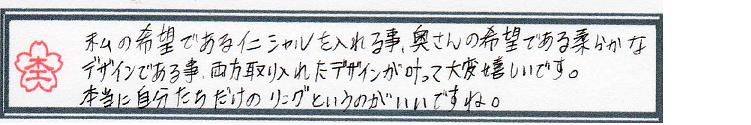 私の希望であるイニシャルを入れる事、奥さんの希望である柔らかな
デザインである事、両方取り入れたデザインが叶って大変嬉しいです。
本当に自分たちだけのリングというのがいいですね。